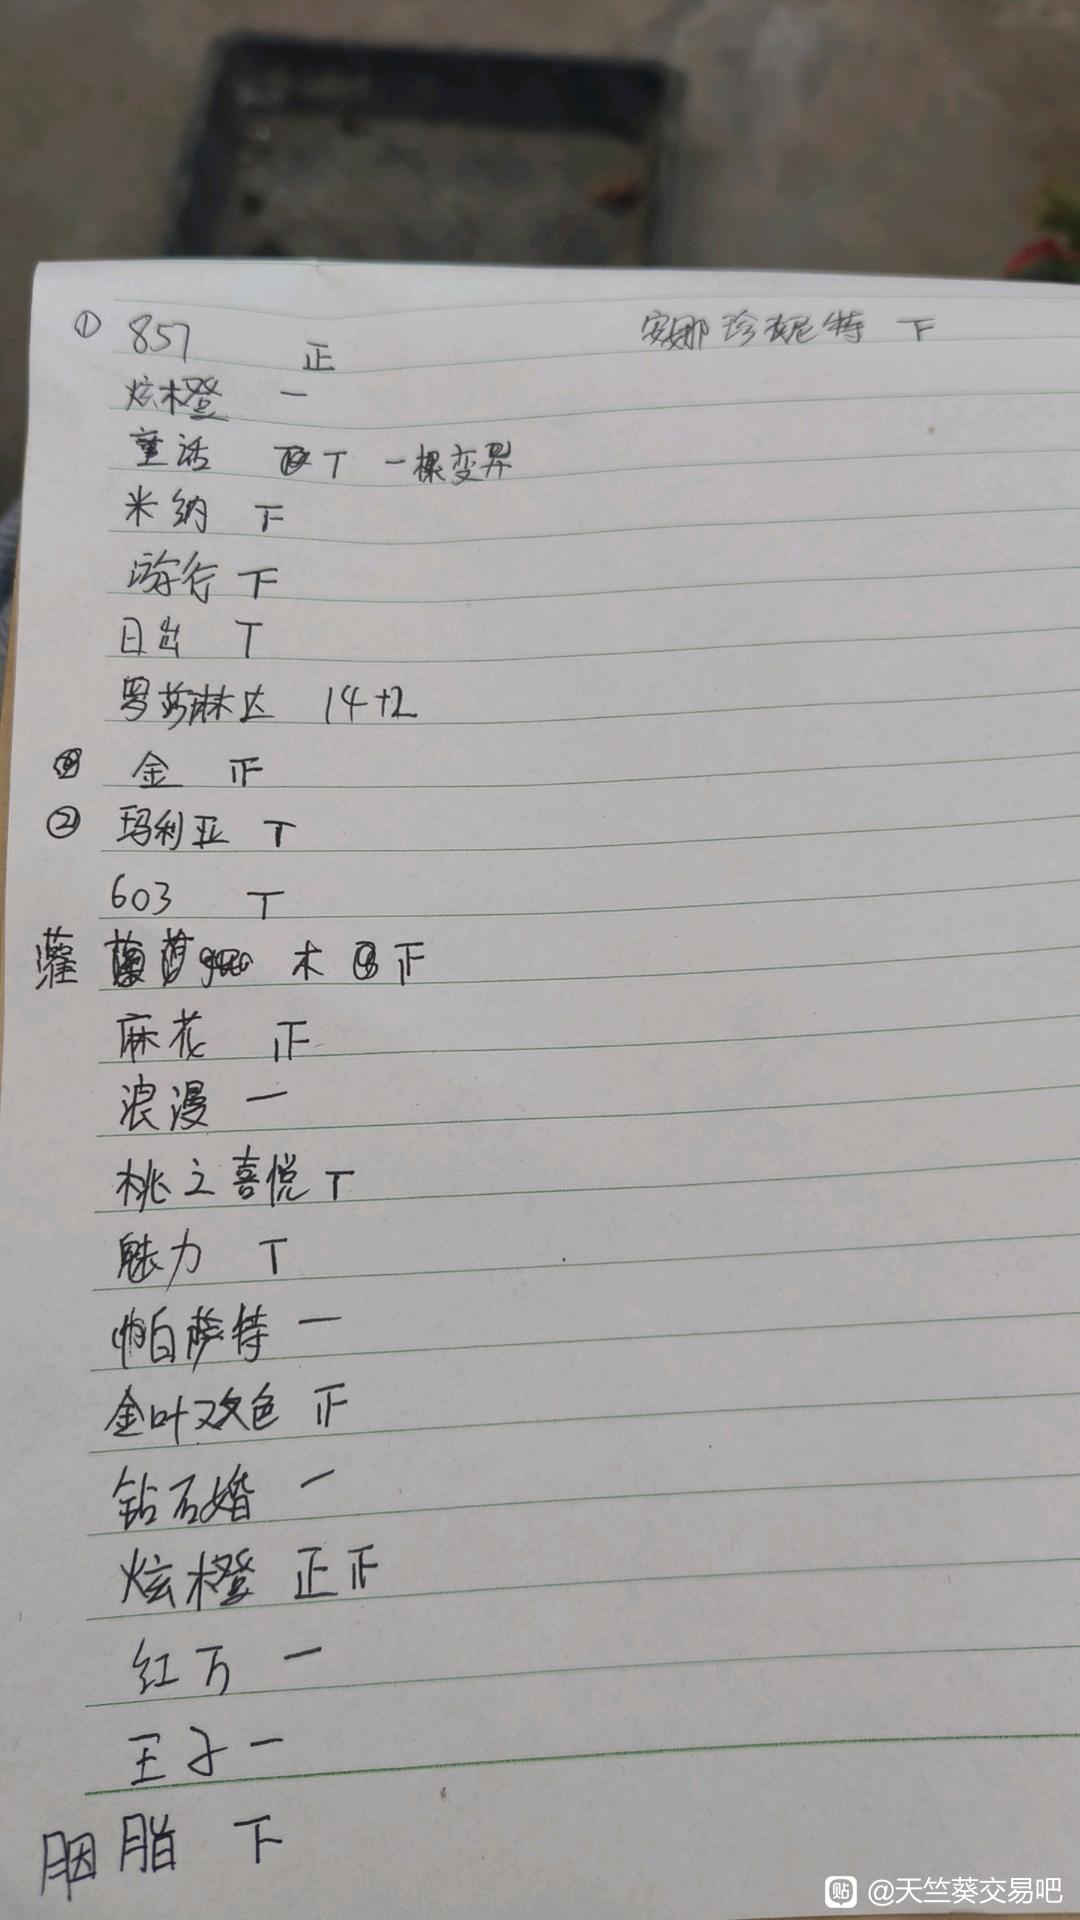 ① 857 正 安娜珍妮特 下
炫橙 一
童话 T 一棵变异
米纳 下
游行 下
日出 T
罗莎琳达 14+2
金 正
② 玛利亚 T
603 T
木 正
麻花 正
浪漫 一
桃之喜悦 T
魅力 T
帕萨特 一
金叶双色 正
钻石婚 一
炫橙 正正
红万 一
王子 一
胭脂 下
贴 @天竺葵交易吧